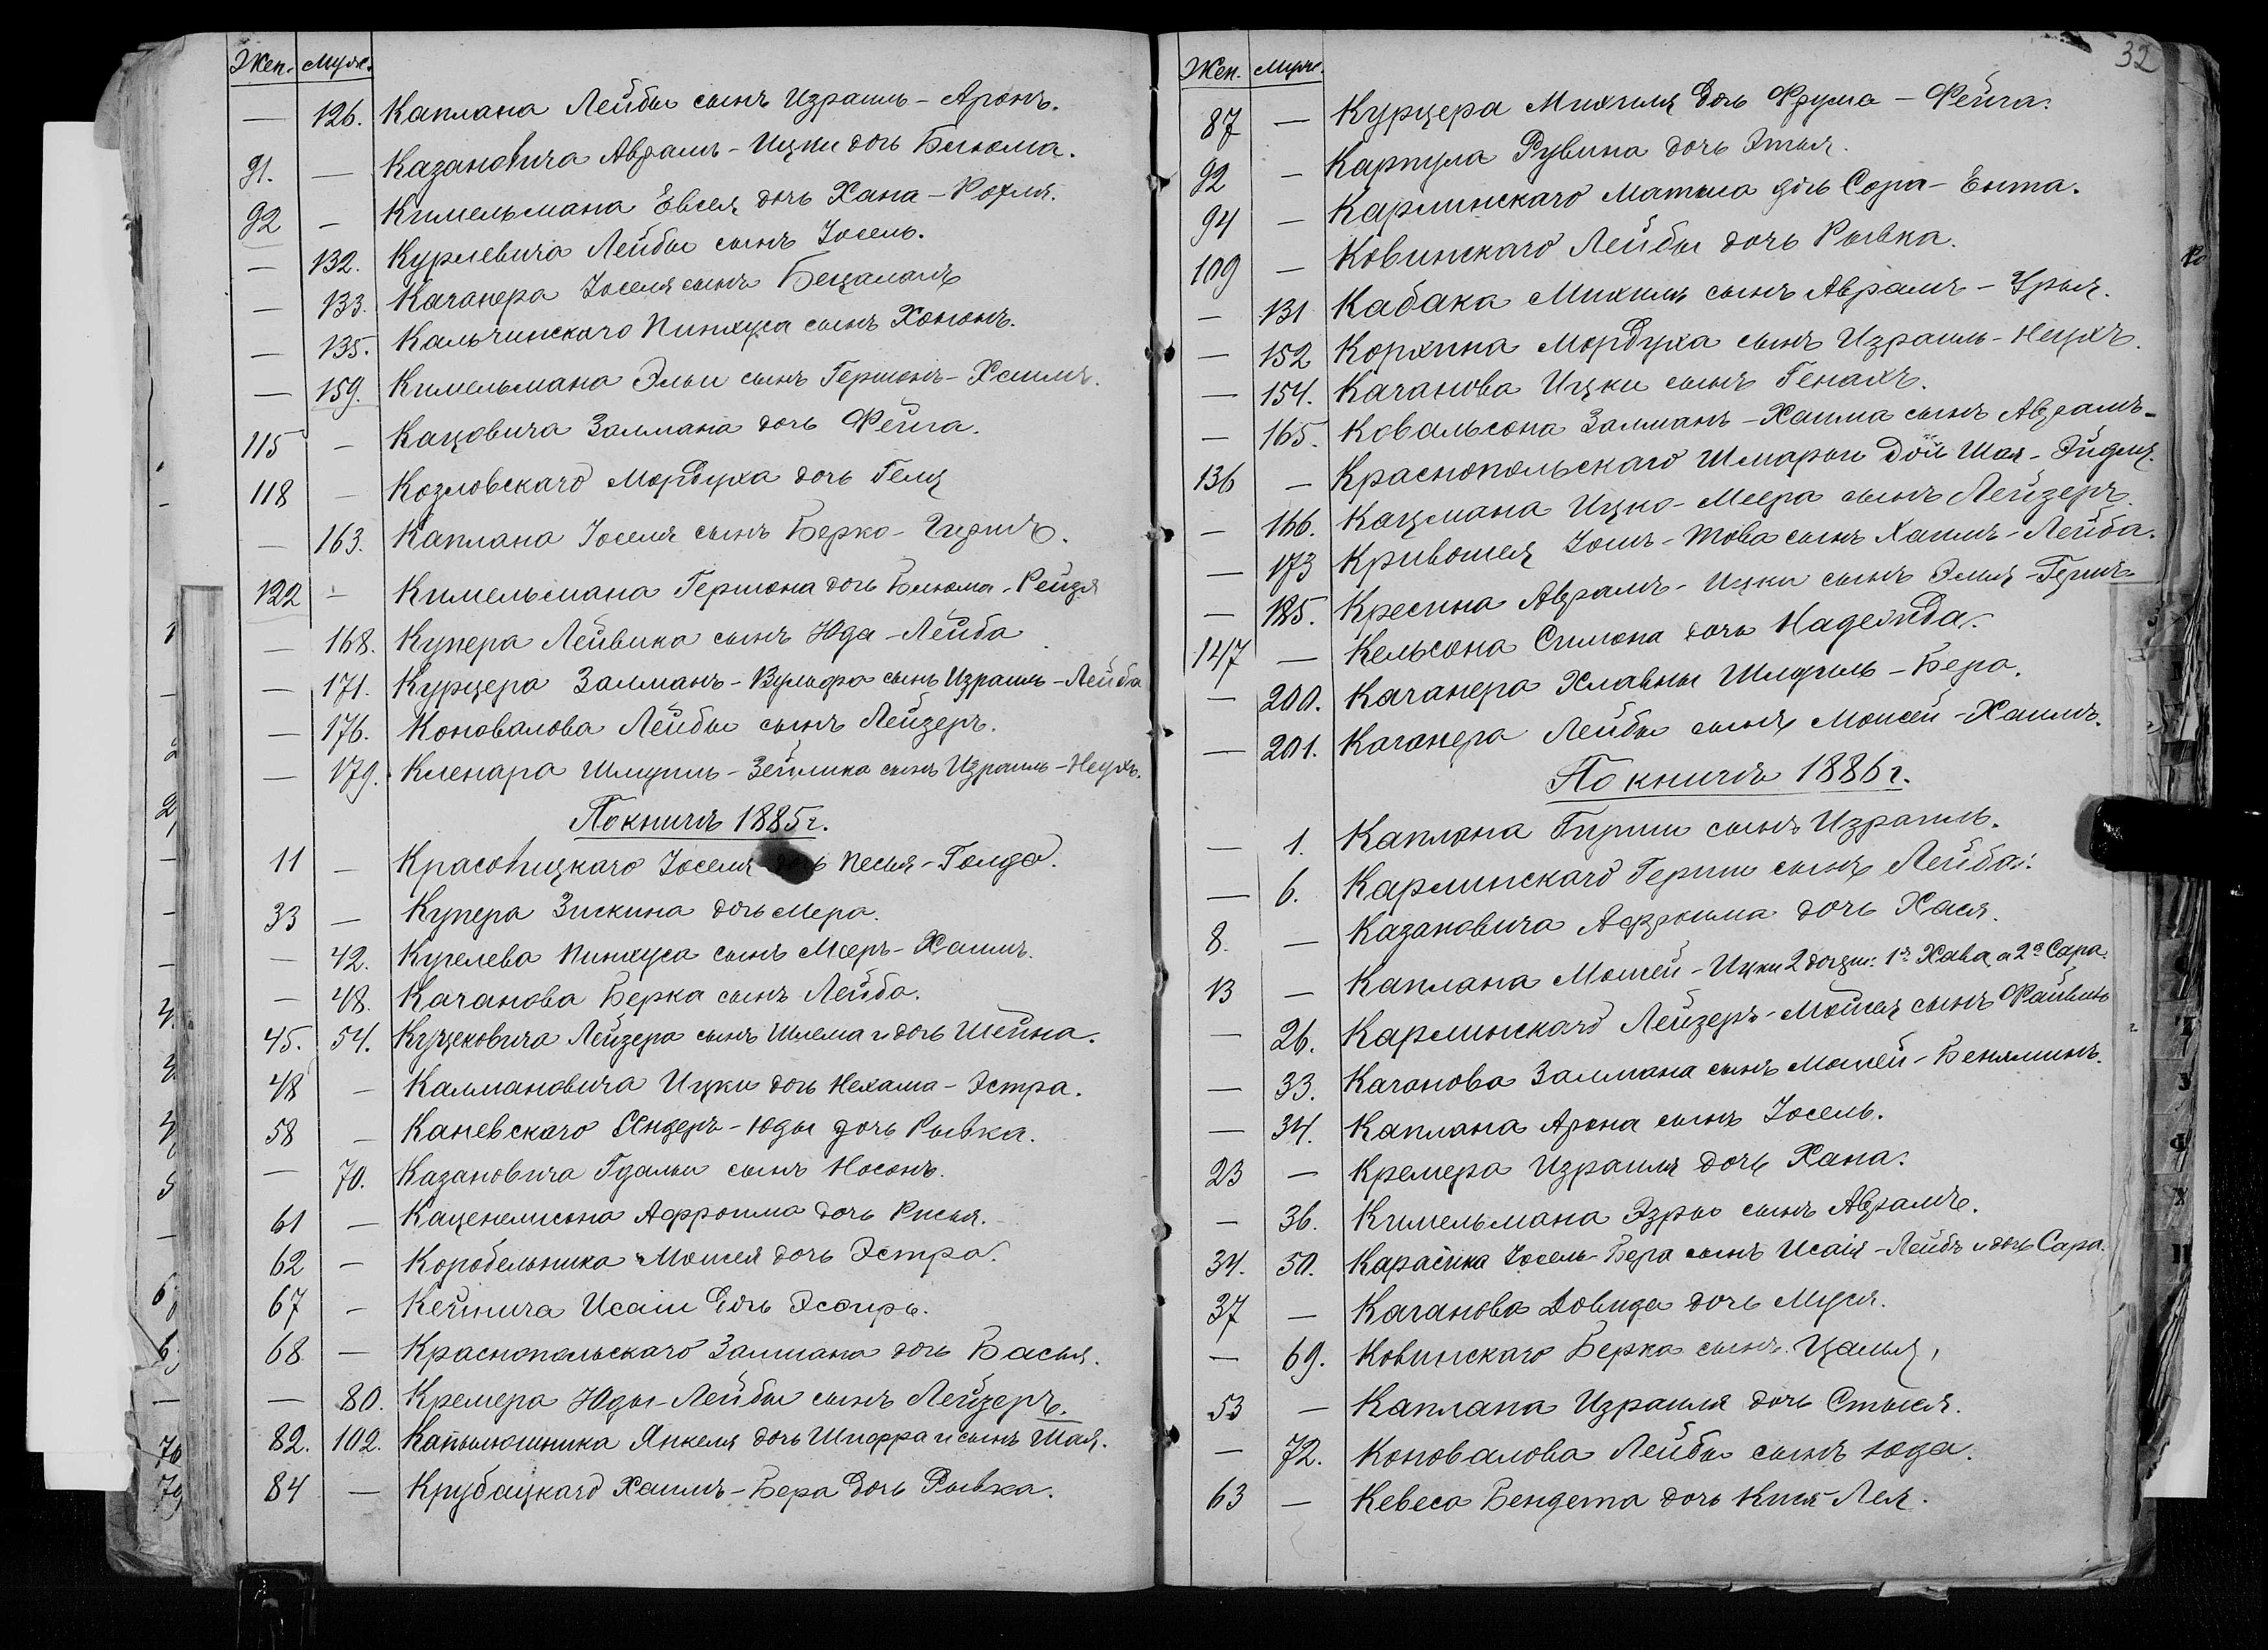 Жен. Муж.
— 126. Каплана Лейбы сынъ Израиль - Аронъ.
91. — Казановича Авраамъ - Ицки дочь Блюма.
92 — Кимельмана Евсея дочь Хана - Рохля.
— 132. Курлевича Лейбы сынъ Іосель.
— 133. Качанера Іоселя сынъ Бецалалъ
— 135. Кальчинскаго Пинхуса сынъ Хононъ.
— 159. Кимельмана Эльи сынъ Гершонъ - Хаимъ.
115 — Кацовича Залмана дочь Фейга.
118 — Козловскаго Мордуха дочь Геля
— 163. Каплана Іоселя сынъ Берко - Гиршъ.
122 — Кимельмана Гершона дочь Блюма - Рейзя
— 168. Купера Лейвика сынъ Юда - Лейба
— 171. Курцера Залманъ - Вульфа сынъ Израиль - Лейба
— 176. Коновалова Лейбы сынъ Лейзеръ.
— 179. Кленара Шмуиль - Зейлика сынъ Израиль - Неухъ.
По книгѣ 1885 г.
11 — Красовицкаго Іоселя дочь Песья - Голда.
33 — Купера Зискина дочь Мера.
— 42. Кугелева Пинхуса сынъ Мееръ - Хаимъ.
— 48. Качанова Берка сынъ Лейба.
45. 54. Куцековича Лейзера сынъ Шлема и дочь Шейна.
48 — Калмановича Ицки дочь Нехама - Эстра.
58 — Каневскаго Сендеръ - Юды дочь Рывка.
— 70. Казановича Гдальи сынъ Носонъ.
61 — Каценелисона Афроима дочь Рисья.
62 — Коробельника Моисея дочь Эстра.
67 — Кейтича Исаіи дочь Эсфирь.
68 — Краснопольскаго Залмана дочь Басья.
— 80. Кремера Юды - Лейбы сынъ Лейзеръ.
82. 102. Капылюшника Янкеля дочь Шифра и сынъ Шая.
84 — Крубацкаго Хаимъ - Бера дочь Рывка.
32
Жен. Муж.
87 — Курцера Михиля дочь Фрума - Фейга.
92 — Карпула Рувина дочь Этья.
94 — Карлинскаго Матыса дочь Сора - Ента.
109 — Ковинскаго Лейбы дочь Рывка.
— 131 Кабака Михиля сынъ Авраамъ - Урыя.
— 152 Коржина Мордуха сынъ Израиль - Неухъ.
— 154. Качанова Ицки сынъ Генахъ.
— 165. Ковальсона Залманъ - Хаима сынъ Авраамъ.
136 — Краснопольскаго Шмарьи дочь Шая - Эйдля.
— 166. Кацмана Ицко - Меера сынъ Лейзеръ.
— 173 Кривошея Іомъ - Това сынъ Хаимъ - Лейба.
— 185. Кресина Авраамъ - Ицки сынъ Элья - Гершъ.
147 — Кельсона Симона дочь Надежда.
— 200. Качанера Хлавны Шмуиль - Бера.
— 201. Качанера Лейбы сынъ Моисей - Хаимъ.
По книгѣ 1886 г.
— 1. Каплана Гирши сынъ Израиль.
— 6. Карлинскаго Герши сынъ Лейба.
8. — Казановича Афроима дочь Хася.
13 — Каплана Мошей - Ицки 2 дочери: 1я Хава, а 2я Сара.
— 26. Карлинскаго Лейзеръ - Мошея сынъ Файвишъ
— 33. Качанова Залмана сынъ Мошей - Беняминъ.
— 34. Каплана Арона сынъ Іосель.
23 — Кремера Израиля дочь Хана.
— 36. Кимельмана Эзры сынъ Авраамъ.
34. 50. Карасика Іосель - Бера сынъ Исаія - Лейбъ и дочь Сара.
37 — Качанова Довида дочь Муся.
— 69. Ковинскаго Берка сынъ Цалья,
53 — Каплана Израиля дочь Стыся.
— 72. Коновалова Лейбы сынъ Юда.
63 — Кевеса Бендета дочь Кися Лея.